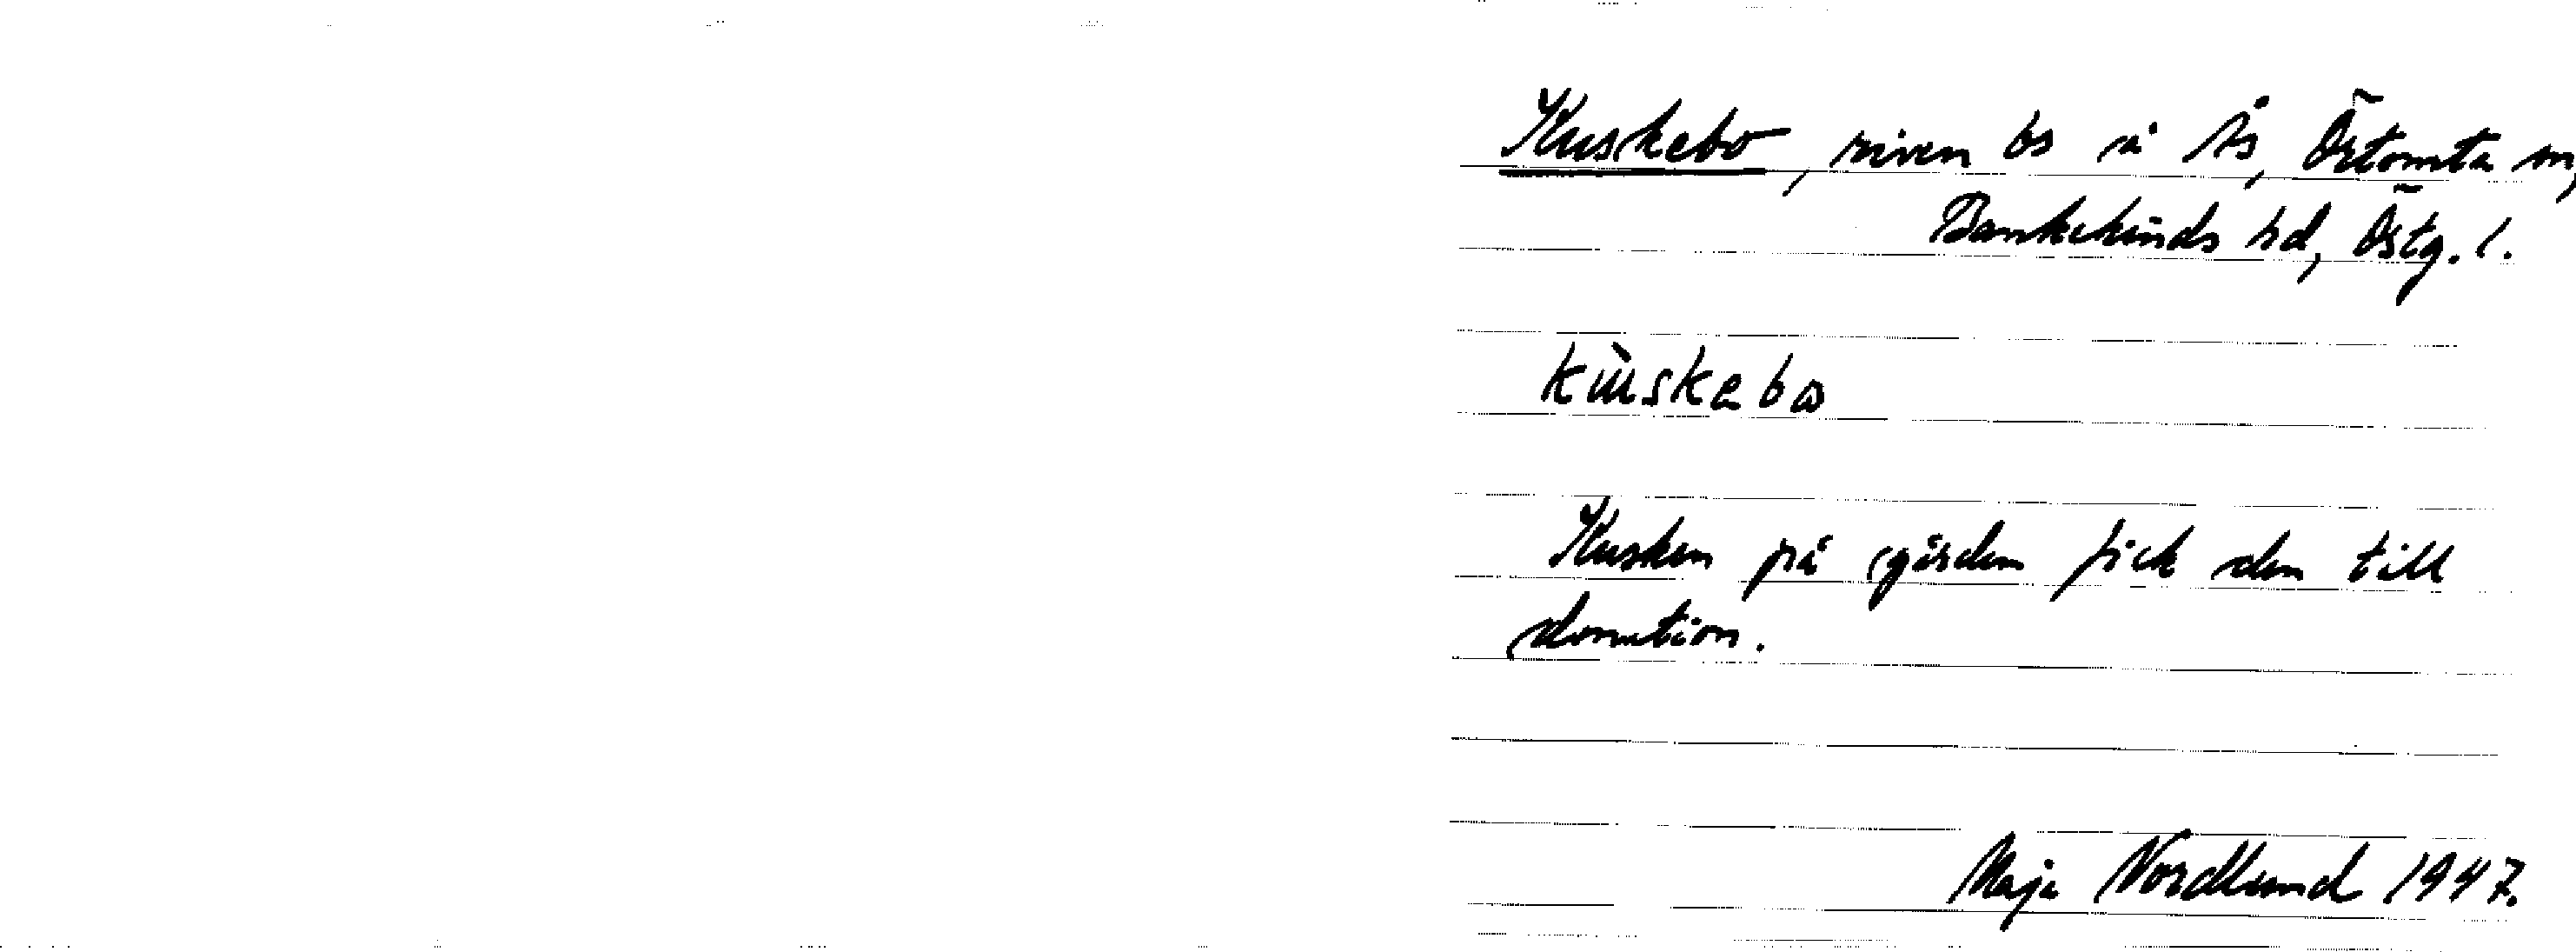 Kuskebo, riven bs å Ås, Örtomta sn,
Bankekinds hd, Östg. l.
kùskebo
Kusken på gården fick den till
donation.
Maja Nordlund 1947.